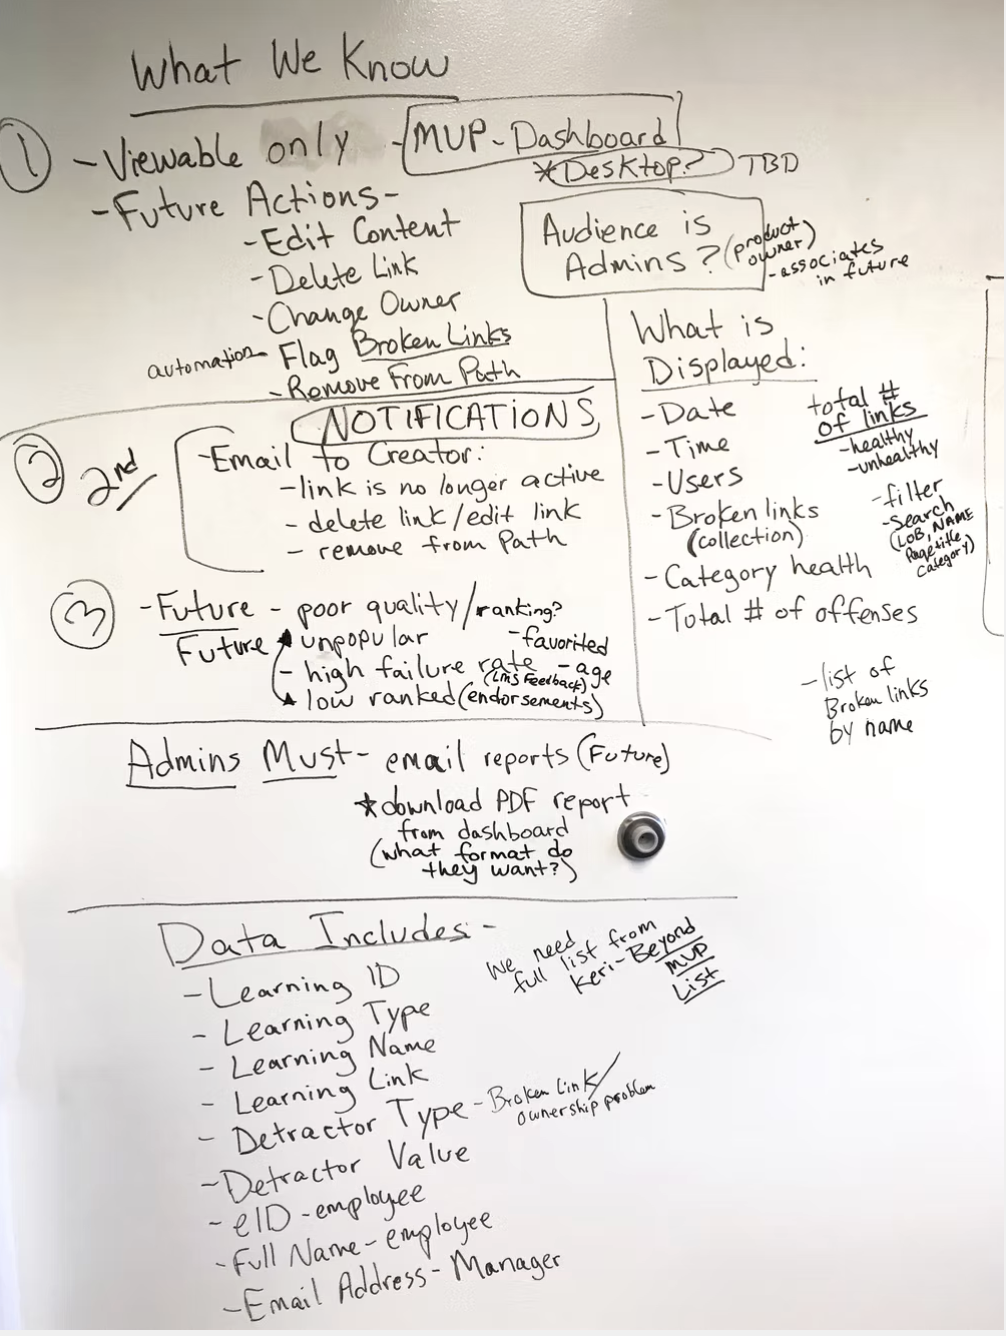 What We Know
① - Viewable only - MVP - Dashboard
*Desktop? TBD
- Future Actions -
- Edit Content
- Delete Link
- Change Owner
automation - Flag Broken Links
- Remove From Path
Audience is
Admins? (product
owner)
- associates
in future
NOTIFICATIONS
② 2nd
- Email to Creator:
- link is no longer active
- delete link/edit link
- remove from Path
③ - Future - poor quality/ranking?
Future unpopular - favorited
- high failure rate - age
(LMS Feedback)
low ranked (endorsements)
What is
Displayed:
- Date
- Time
- Users
- Broken links
(collection)
- Category health
- Total # of offenses
total #
of links
- healthy
- unhealthy
- filter
- Search
(LOB, NAME
Page title,
Category)
- list of
Broken links
by name
Admins Must - email reports (Future)
*download PDF report
from dashboard
(what format do
they want?)
Data Includes -
- Learning ID
- Learning Type
- Learning Name
- Learning Link
- Detractor Type - Broken Link/
ownership problem
- Detractor Value
- eID - employee
- Full Name - employee
- Email Address - Manager
We need
full list from
Keri - Beyond
MVP
List